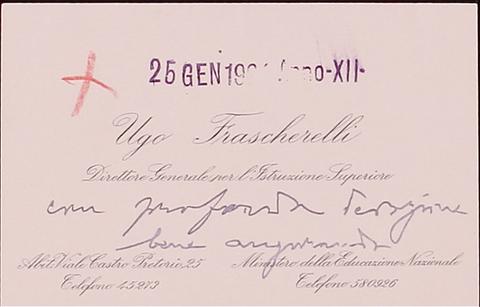 25 GEN 19 Anno-XII-
Ugo Frascherelli
Direttore Generale per l'Istruzione Superiore
con profonda devozione
bene augurando
Abit. Viale Castro Pretorio, 25 Ministero della Educazione Nazionale
Telefono 45279 Telefono 580926